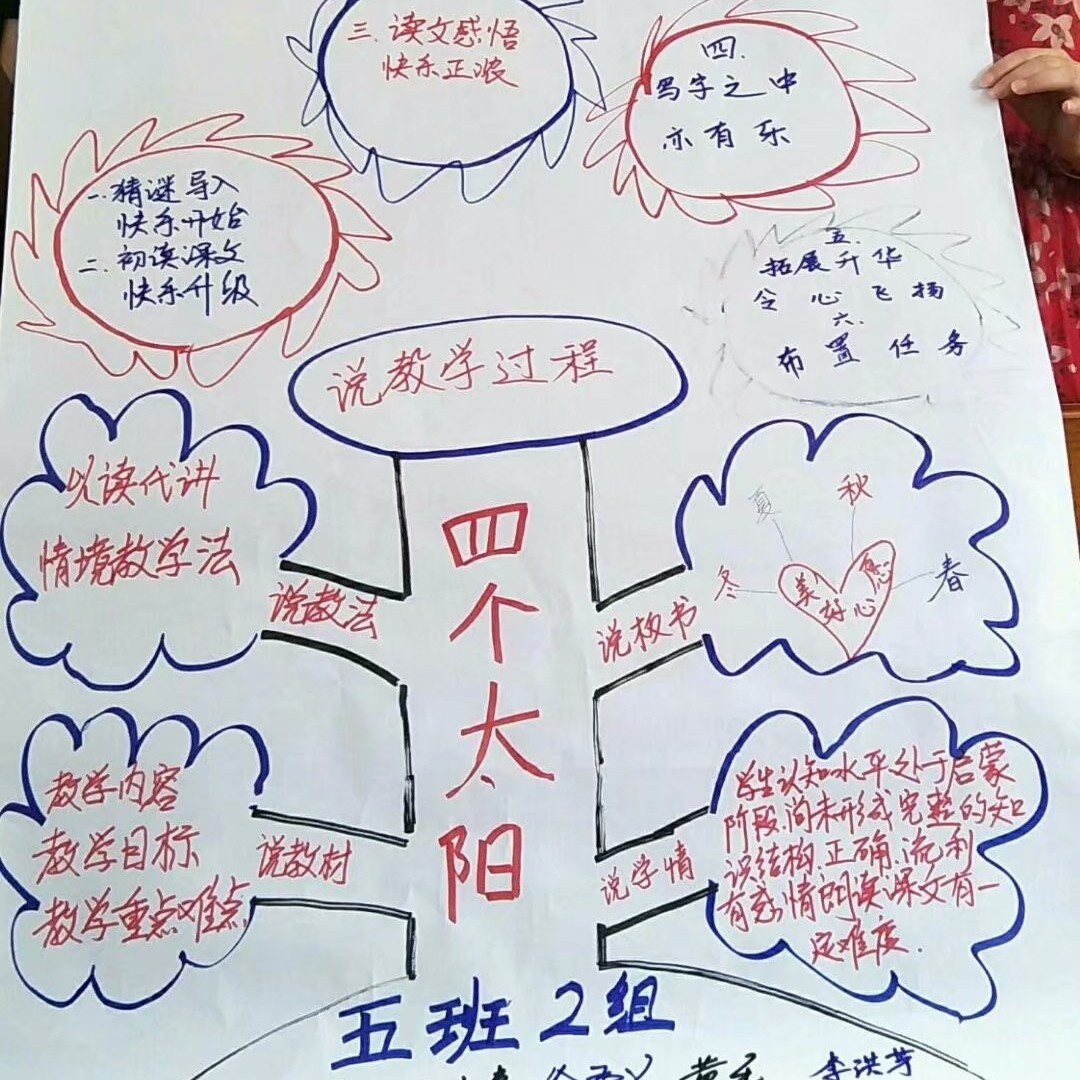 三.读文感悟
快乐正浓
四.
写字之中
亦有乐
一.猜谜导入
快乐开始
二.初读课文
快乐升级
五.
拓展升华
令心飞扬
六.
布置任务
说教学过程
以读代讲
情境教学法
说教法
四个太阳
夏
秋
冬
春
美好心愿
说板书
教学内容
教学目标
教学重点难点
说教材
学生认知水平处于启蒙
阶段,尚未形成完整的知
识结构.正确.流利
有感情朗读课文有一
定难度.
说学情
五班2组
李洪芳